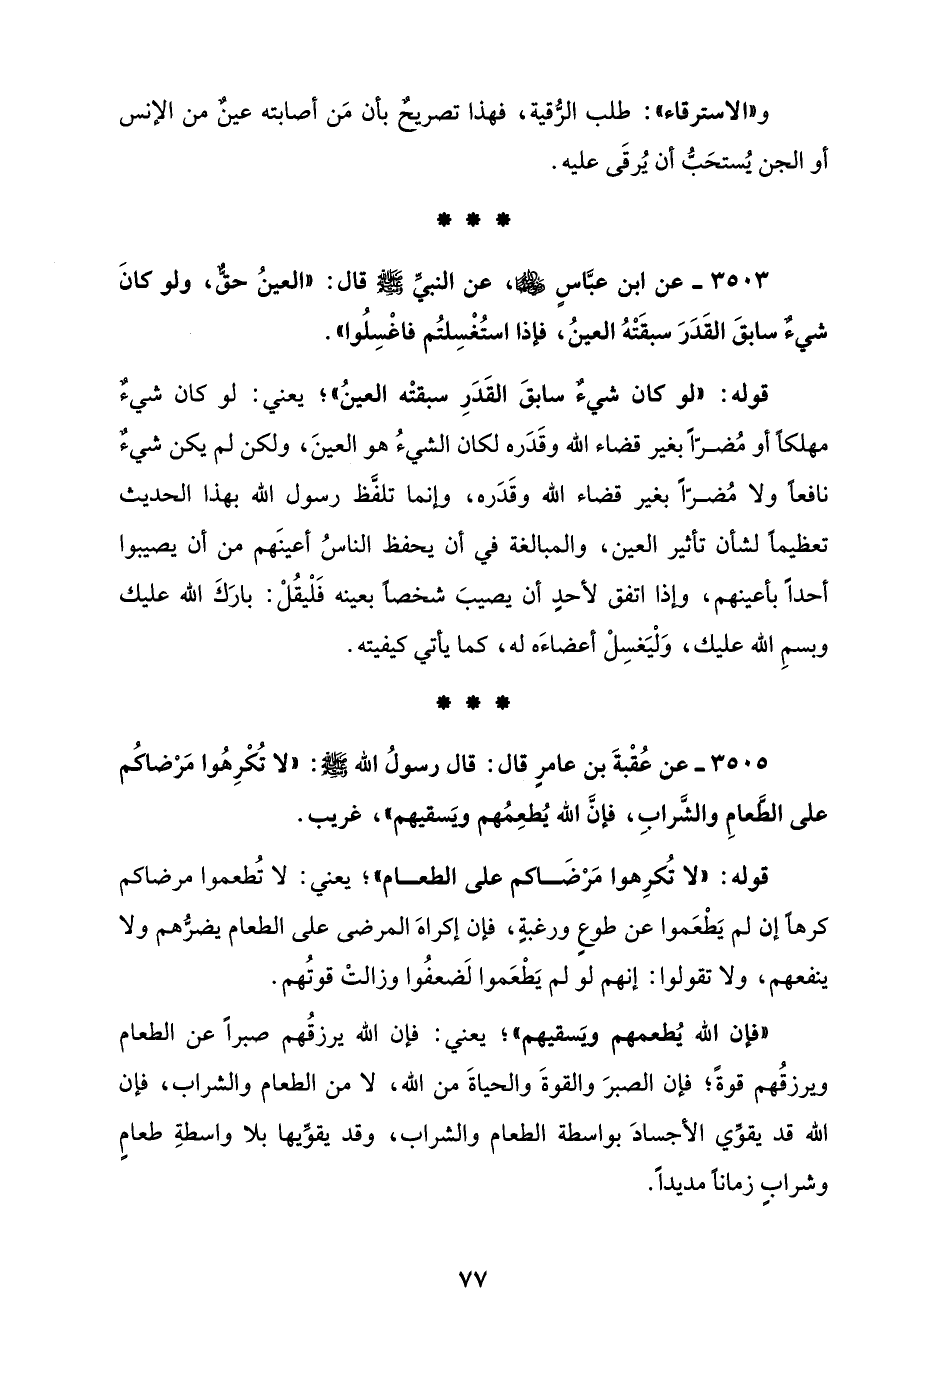 و«الاسترقاء»: طلب الرُّقية، فهذا تصريحٌ بأن مَن أصابته عينٌ من الإنس
أو الجن يُستحَبُّ أن يُرقَى عليه.
* * *
٣٥٠٣ ـ عن ابن عبَّاسٍ ﵄، عن النبيِّ ﷺ قال: «العينُ حقٌّ، ولو كانَ
شيءٌ سابقَ القَدَرَ سبقَتْهُ العينُ، فإذا استُغْسِلتُم فاغْسِلُوا».
قوله: «لو كان شيءٌ سابقَ القَدَرِ سبقتْه العينُ»؛ يعني: لو كان شيءٌ
مهلكاً أو مُضـرّاً بغير قضاء الله وقَدَره لكان الشيءُ هو العينَ، ولكن لم يكن شيءٌ
نافعاً ولا مُضـرّاً بغير قضاء الله وقَدَره، وإنما تلفَّظ رسول الله بهذا الحديث
تعظيماً لشأن تأثير العين، والمبالغة في أن يحفظ الناسُ أعينَهم من أن يصيبوا
أحداً بأعينهم، وإذا اتفق لأحدٍ أن يصيبَ شخصاً بعينه فَلْيقُلْ: بارَكَ الله عليك
وبسمِ الله عليك، وَلْيَغسِلْ أعضاءَه له، كما يأتي كيفيته.
* * *
٣٥٠٥ ـ عن عُقْبةَ بن عامرٍ قال: قال رسولُ الله ﷺ: «لا تُكْرِهُوا مَرْضاكُم
على الطَّعامِ والشَّرابِ، فإنَّ الله يُطعِمُهم ويَسقيهم»، غريب.
قوله: «لا تُكرِهوا مَرْضَـاكم على الطعـام»؛ يعني: لا تُطعموا مرضاكم
كرهاً إن لم يَطْعَموا عن طوعٍ ورغبةٍ، فإن إكراهَ المرضى على الطعام يضرُّهم ولا
ينفعهم، ولا تقولوا: إنهم لو لم يَطْعَموا لَضعفُوا وزالتْ قوتُهم.
«فإن الله يُطعمهم ويَسقيهم»؛ يعني: فإن الله يرزقُهم صبراً عن الطعام
ويرزقُهم قوةً؛ فإن الصبرَ والقوةَ والحياةَ من الله، لا من الطعام والشراب، فإن
الله قد يقوِّي الأجسادَ بواسطة الطعام والشراب، وقد يقوِّيها بلا واسطةِ طعامٍ
وشرابٍ زماناً مديداً.
٧٧